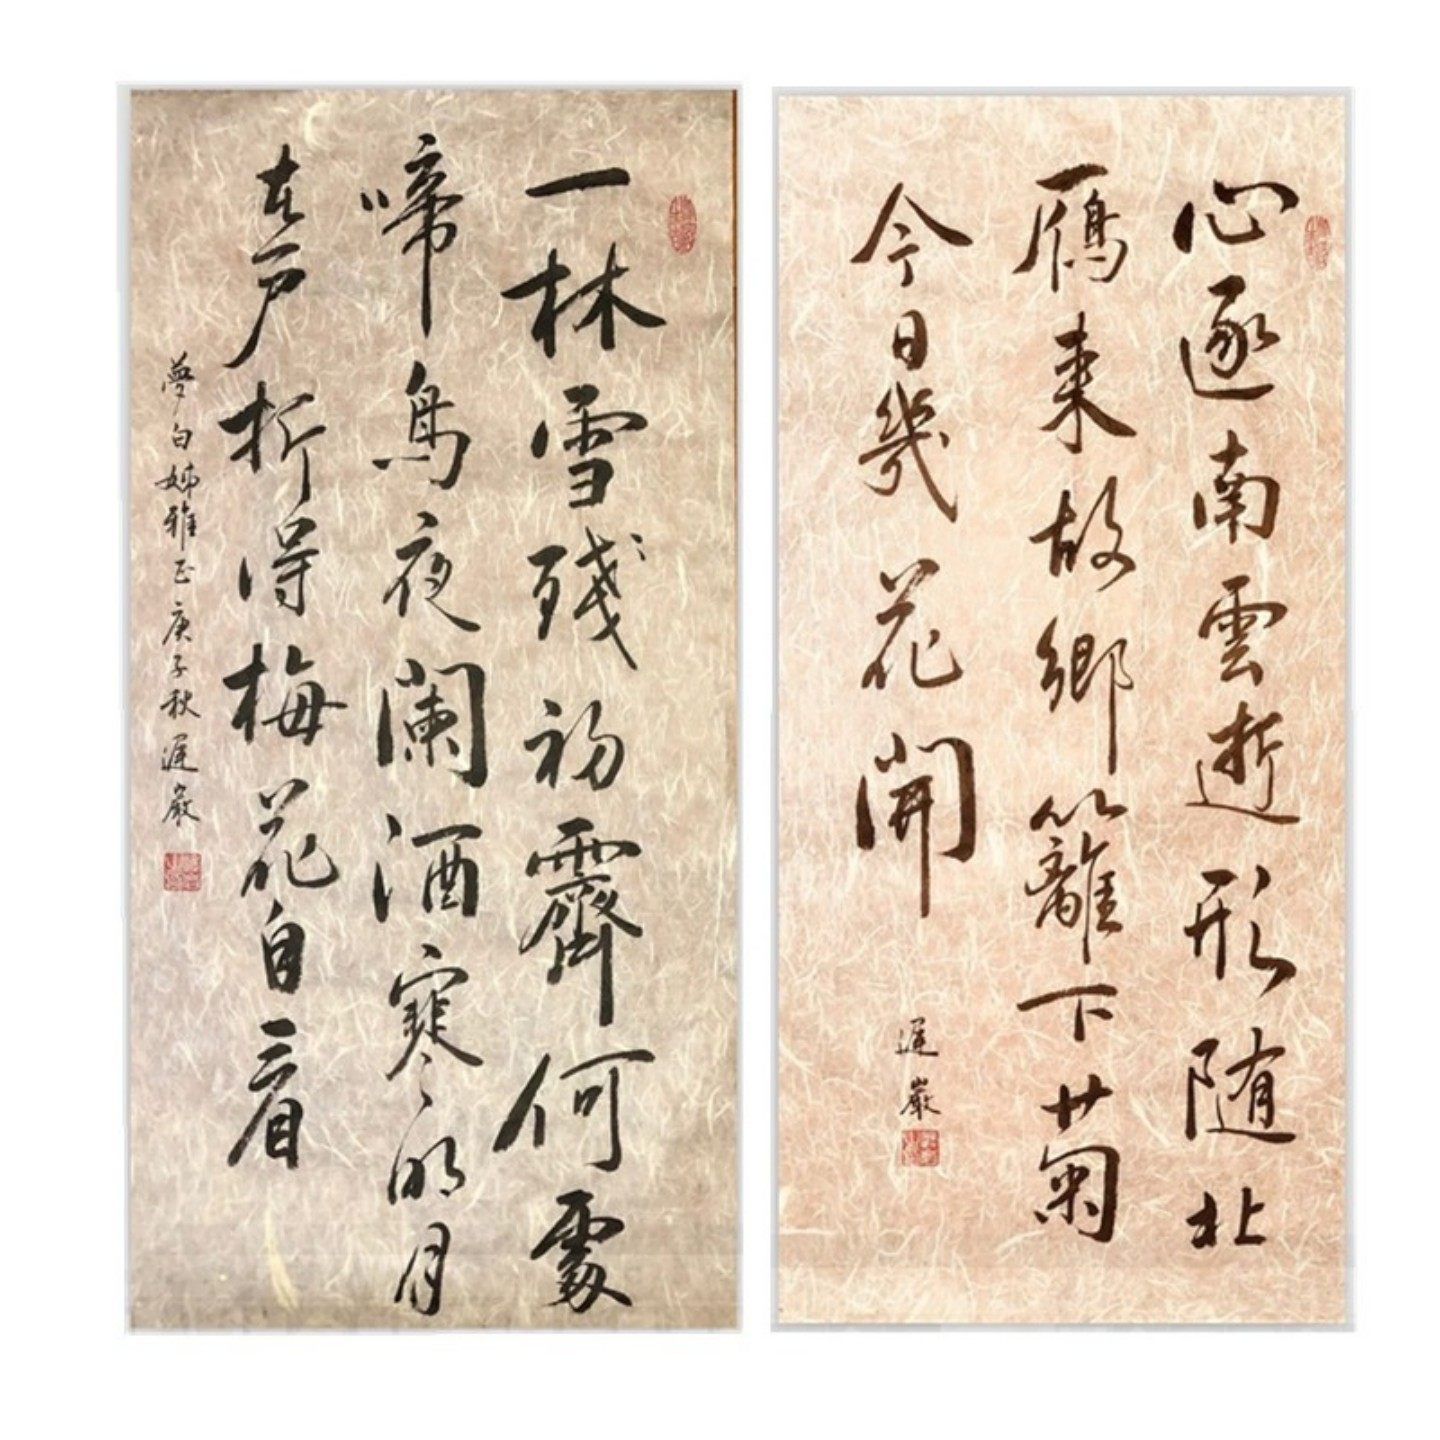 心逐南雲逝形随北
雁来故鄉籬下菊
今日幾花開
遲巖
一林雪殘初霽何處
啼鳥夜闌酒寒明月
在戶折得梅花自看
夢白姊雅正庚子秋遲巖